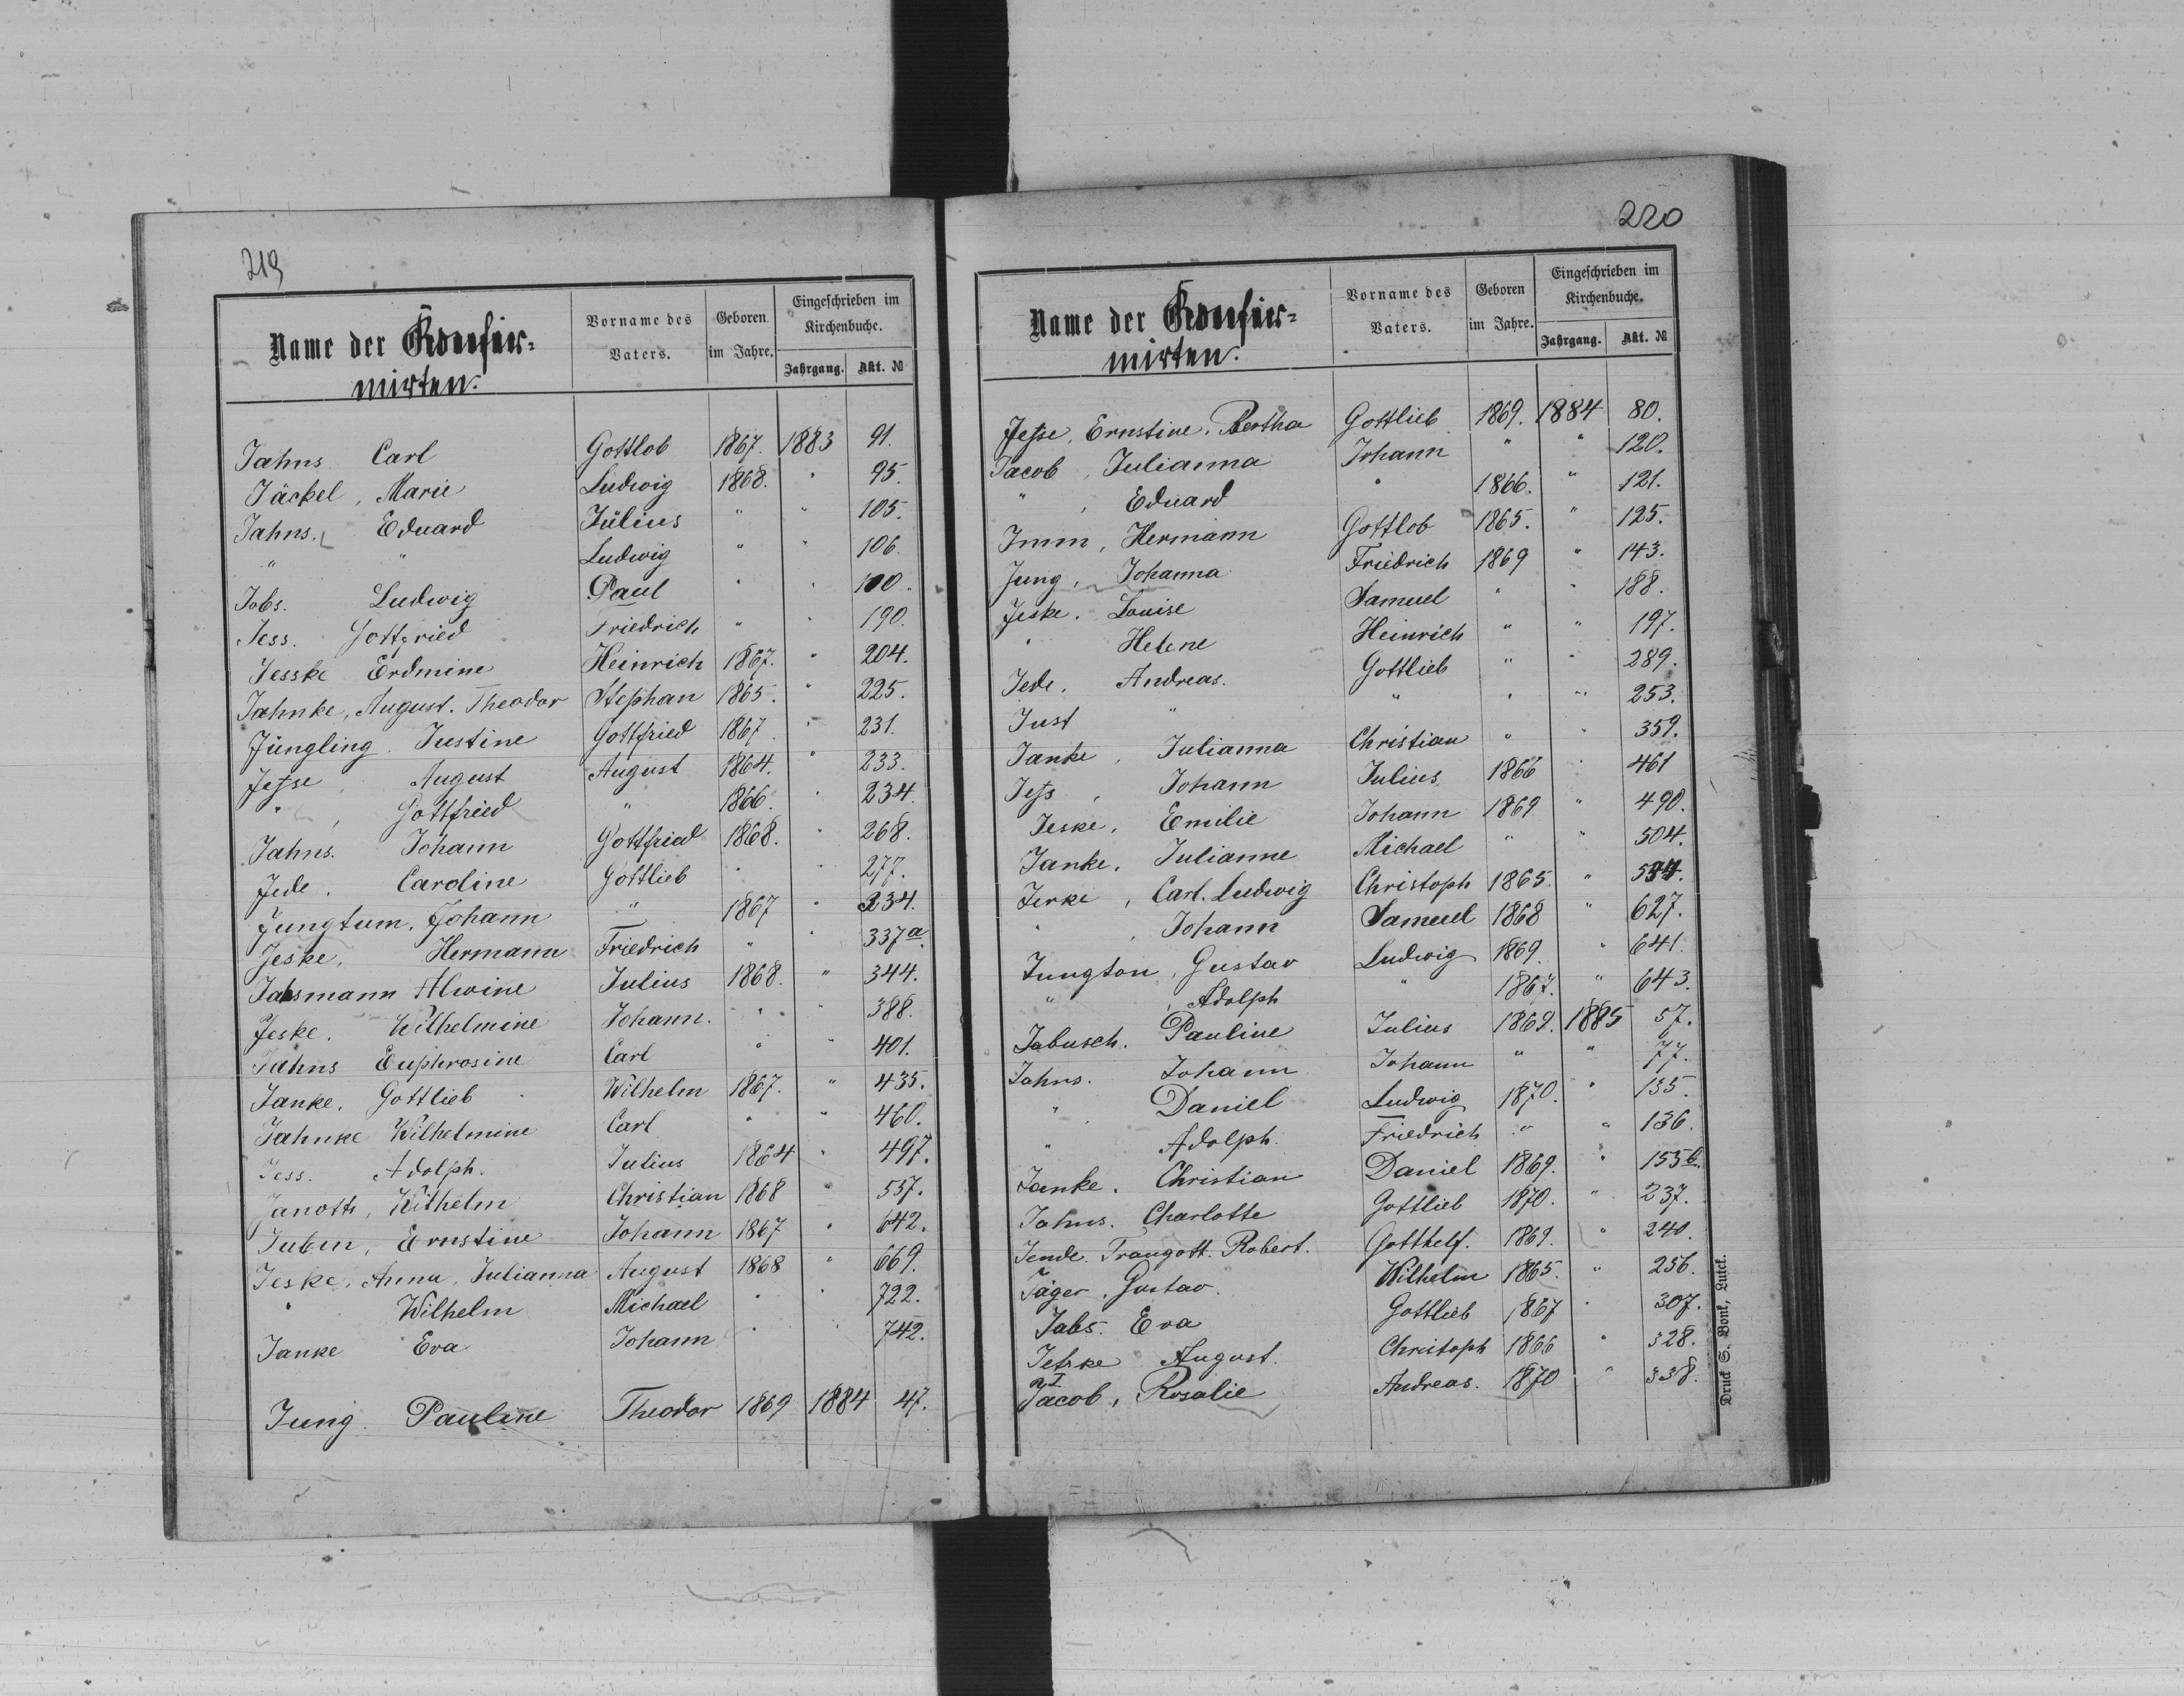 219
Name der Konfir-
mirten.
Vorname des Vaters.
Geboren im Jahre.
Eingeschrieben im Kirchenbuche.
Jahrgang. Akt. №
Jahns Carl Gottlob 1867. 1883 91.
Jäckel, Marie Ludwig 1868. " 95.
Jahns. Eduard Julius " " 105.
" " Ludwig " " 106.
Jobs. Ludwig Paul " " 100.
Jess. Gottfried Friedrich " " 190.
Jesske Erdmine Heinrich 1867. " 204.
Jahnke, August. Theodor Stephan 1865. " 225.
Jüngling. Justine Gottfried 1867. " 231.
Jesse, August August 1864. " 233.
" , Gottfried " 1866. " 234.
Jahns. Johann Gottfried 1868. " 268.
Jede. Caroline Gottlieb " " 277.
Jungtum. Johann " 1867 " 334.
Jeske, Hermann Friedrich " " 337a
Jahsmann Alwine Julius 1868. " 344.
Jeske. Wilhelmine Johann. " " 388.
Jahns Euphrosine Carl " " 401.
Janke. Gottlieb Wilhelm 1867. " 435.
Jahnke Wilhelmine Carl " " 460.
Jess. Adolph. Julius 1864 " 497.
Janott, Wilhelm Christian 1868 " 537.
Ernstine Johann 1867 " 642.
Jeske, Anna, Julianna August 1868 " 669.
" Wilhelm Michael " " 722.
Janke Eva Johann " " 742.
Jung. Pauline Theodor 1869 1884 47.
220
Name der Konfir-
mirten.
Vorname des Vaters.
Geboren im Jahre.
Eingeschrieben im Kirchenbuche.
Jahrgang. Akt. №
Jesse, Ernstine. Bertha Gottlieb 1869. 1884 80.
Jacob, Julianna Johann " " 120.
" , Eduard " 1866. " 121.
Jmm, Hermann Gottlob 1865. " 125.
Jung, Johanna Friedrich 1869 " 143.
Jeske. Louise Samuel " " 188.
" Helene Heinrich " " 197.
Jede, Andreas. Gottlieb " " 289.
Just " " " " 253.
Janke, Julianna Christian " " 359.
Jess, Johann Julius 1866 " 461
Jeske, Emilie Johann 1869 " 490.
Janke, Julianne Michael " " 504.
Jerke, Carl. Ludwig Christoph 1865. "
" , Johann Samuel 1868 " 627.
Jungton, Gustav Ludwig 1869. " 641.
" , Adolph " 1867. " 643.
Jabusch. Pauline Julius 1869. 1885 57.
Jahns. Johann Johann " " 77.
" Daniel Ludwig 1870. " 135.
" Adolph. Friedrich " " 136.
Janke. Christian Daniel 1869. " 155b.
Jahns. Charlotte Gottlieb 1870. " 237.
Jende. Traugott. Robert. Gotthelf. 1869. " 240.
Jäger, Gustav. Wilhelm 1865. " 256.
Jabs. Eva Gottlieb 1867 " 307.
Jetzke August. Christoph 1866 " 328.
Jacob, Rosalie Andreas. 1870 " 338.
Druck S. Bonk, Lutck.